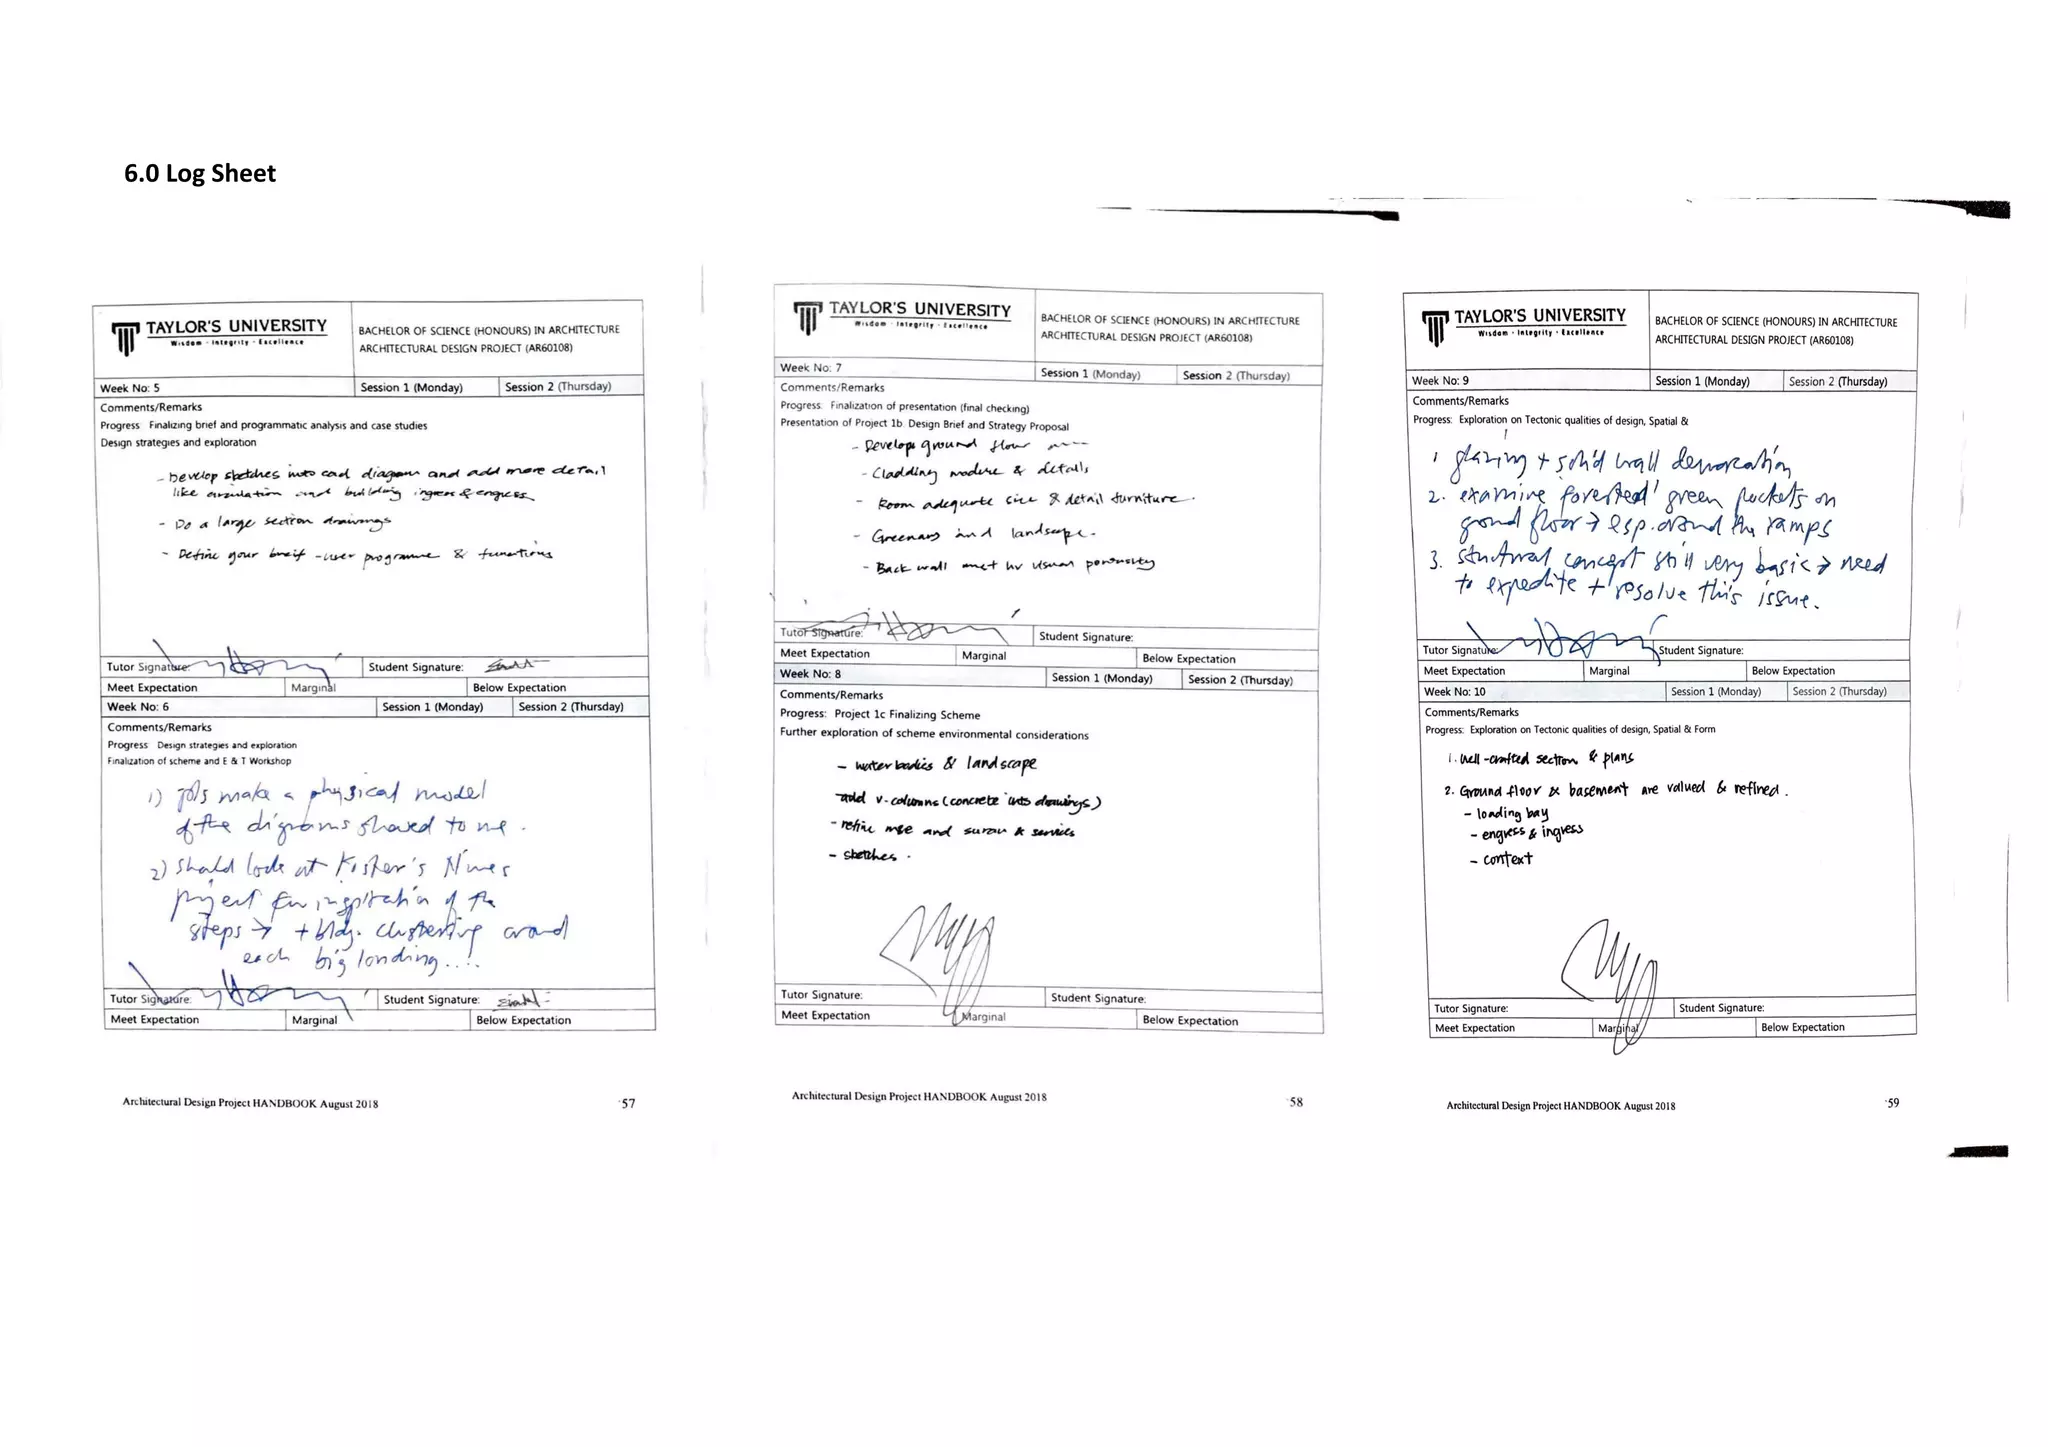 6.0 Log Sheet
TAYLOR'S UNIVERSITY
Wisdom · Integrity · Excellence
BACHELOR OF SCIENCE (HONOURS) IN ARCHITECTURE
ARCHITECTURAL DESIGN PROJECT (AR60108)
Week No: 5
Session 1 (Monday)
Session 2 (Thursday)
Comments/Remarks
Progress Finalizing brief and programmatic analysis and case studies
Design strategies and exploration
- Develop sketches into cad diagram and add more detail
like circulation and building ingress & engress
- Do a large section drawings
- Define your breif - user programme & functions
Tutor Signature:
Student Signature:
Meet Expectation
Marginal
Below Expectation
Week No: 6
Session 1 (Monday)
Session 2 (Thursday)
Comments/Remarks
Progress Design strategies and exploration
Finalization of scheme and E & T Workshop
1) pls make a physical model
of the diagrams showed to me.
2) should look at Foster's Nimes
project for inspiration of the
steps → + bldg. clustering around
each big landing...!.
Tutor Signature:
Student Signature:
Meet Expectation
Marginal
Below Expectation
Architectural Design Project HANDBOOK August 2018
57
TAYLOR'S UNIVERSITY
Wisdom · Integrity · Excellence
BACHELOR OF SCIENCE (HONOURS) IN ARCHITECTURE
ARCHITECTURAL DESIGN PROJECT (AR60108)
Week No: 7
Session 1 (Monday)
Session 2 (Thursday)
Comments/Remarks
Progress: Finalization of presentation (final checking)
Presentation of Project 1b. Design Brief and Strategy Proposal
- Develope ground floor
- Cladding module & details
- Room adequate size & detail furniture.
- Greenary and landscape.
- Back wall visual porousity
Tutor Signature:
Student Signature:
Meet Expectation
Marginal
Below Expectation
Week No: 8
Session 1 (Monday)
Session 2 (Thursday)
Comments/Remarks
Progress: Project 1c Finalizing Scheme
Further exploration of scheme environmental considerations
- water bodies & landscape
- add V-columns (concrete into drawings)
- refine and surau & services
- sketches.
Tutor Signature:
Student Signature:
Meet Expectation
Marginal
Below Expectation
Architectural Design Project HANDBOOK August 2018
58
TAYLOR'S UNIVERSITY
Wisdom · Integrity · Excellence
BACHELOR OF SCIENCE (HONOURS) IN ARCHITECTURE
ARCHITECTURAL DESIGN PROJECT (AR60108)
Week No: 9
Session 1 (Monday)
Session 2 (Thursday)
Comments/Remarks
Progress: Exploration on Tectonic qualities of design, Spatial &
1 glazing + solid wall demarcation
2. examine 'forested' green pockets on
ground floor → esp. around the ramps
3. structural concept still very basic → need
to expedite + resolve this issue.
Tutor Signature:
Student Signature:
Meet Expectation
Marginal
Below Expectation
Week No: 10
Session 1 (Monday)
Session 2 (Thursday)
Comments/Remarks
Progress: Exploration on Tectonic qualities of design, Spatial & Form
1. Well-crafted section & plans
2. Ground floor & basement are valued & refined.
- loading bay
- engress & ingress
- context
Tutor Signature:
Student Signature:
Meet Expectation
Marginal
Below Expectation
Architectural Design Project HANDBOOK August 2018
59